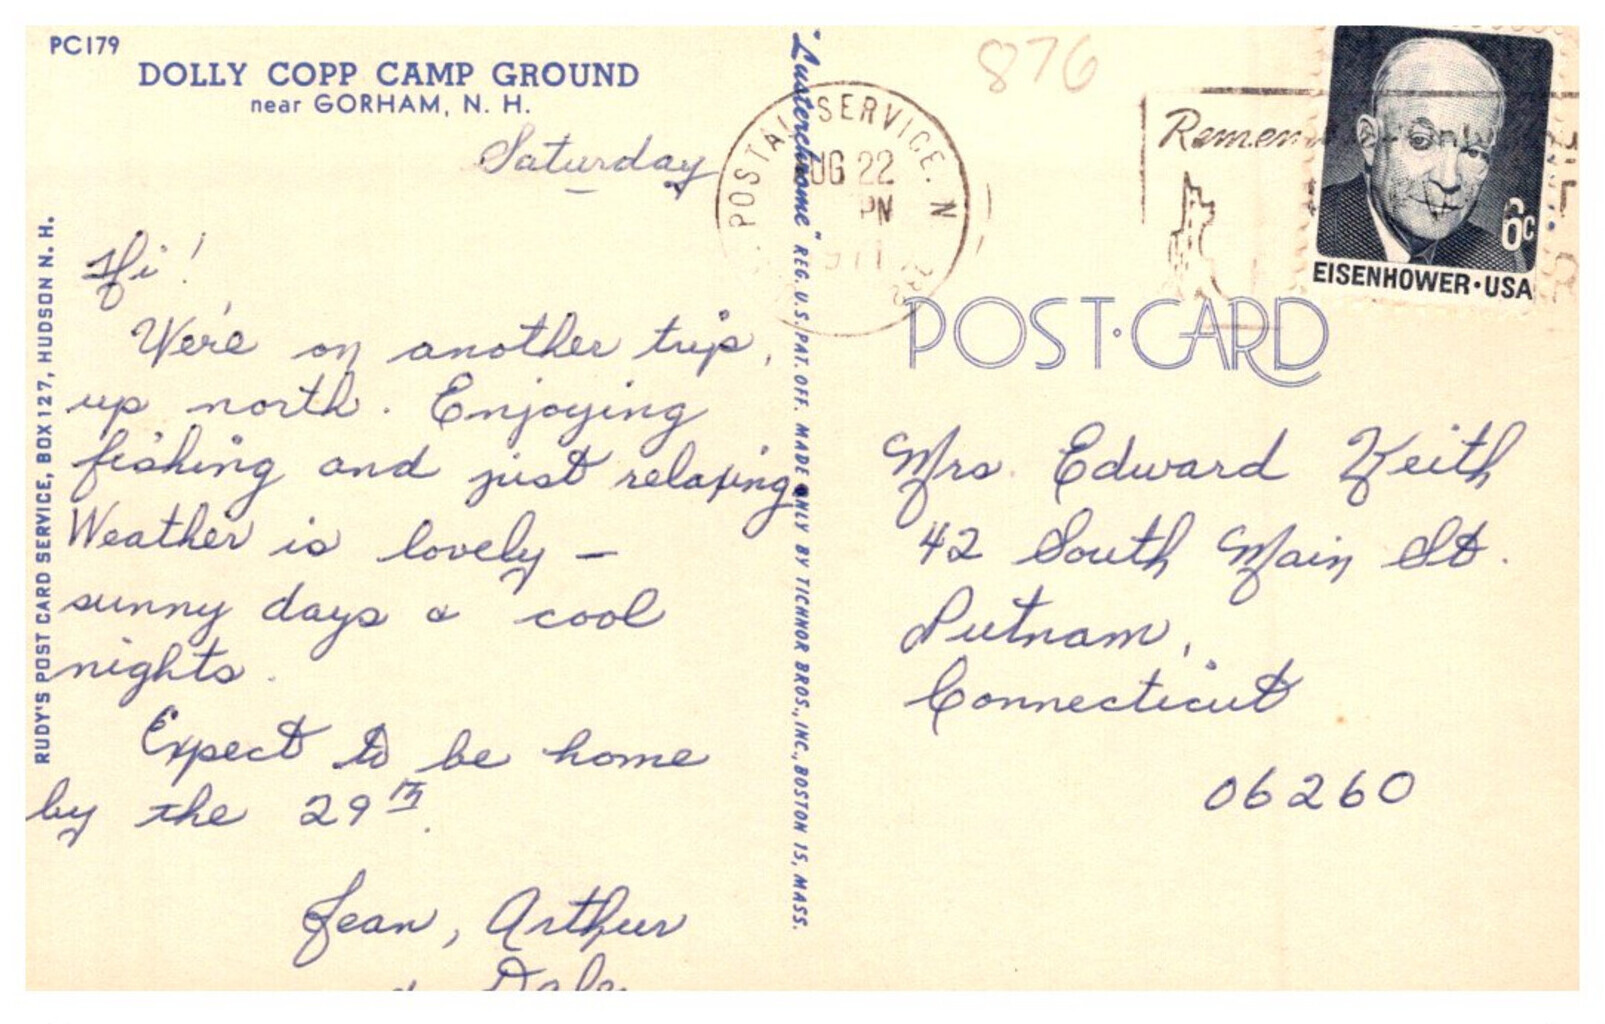 PC179
DOLLY COPP CAMP GROUND
near GORHAM, N. H.
Saturday
Hi!
We're on another trip,
up north. Enjoying
fishing and just relaxing
Weather is lovely —
sunny days & cool
nights.
Expect to be home
by the 29th.
Jean, Arthur
& Dale
RUDY'S POST CARD SERVICE, BOX 127, HUDSON N. H.
"Lusterchrome" REG. U.S. PAT. OFF. MADE ONLY BY TICHNOR BROS., INC., BOSTON 15, MASS.
876
POSTAL SERVICE. N
UG 22
PM
Remem
6c
EISENHOWER·USA
POST·CARD
Mrs. Edward Keith
42 South Main St.
Putnam,
Connecticut
06260